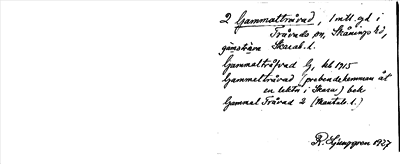 2 Gammaltråvad, 1 mtl. gd i
Tråvads sn, Skånings hd,
Skarab. l.
Gammaltråvad G, kb 1715
Gammaltråvad (prebendehemman åt
en lektor i Skara) bek
Gammal Tråvad 2 (Skattebl. l.)
R. Ljunggren 1927